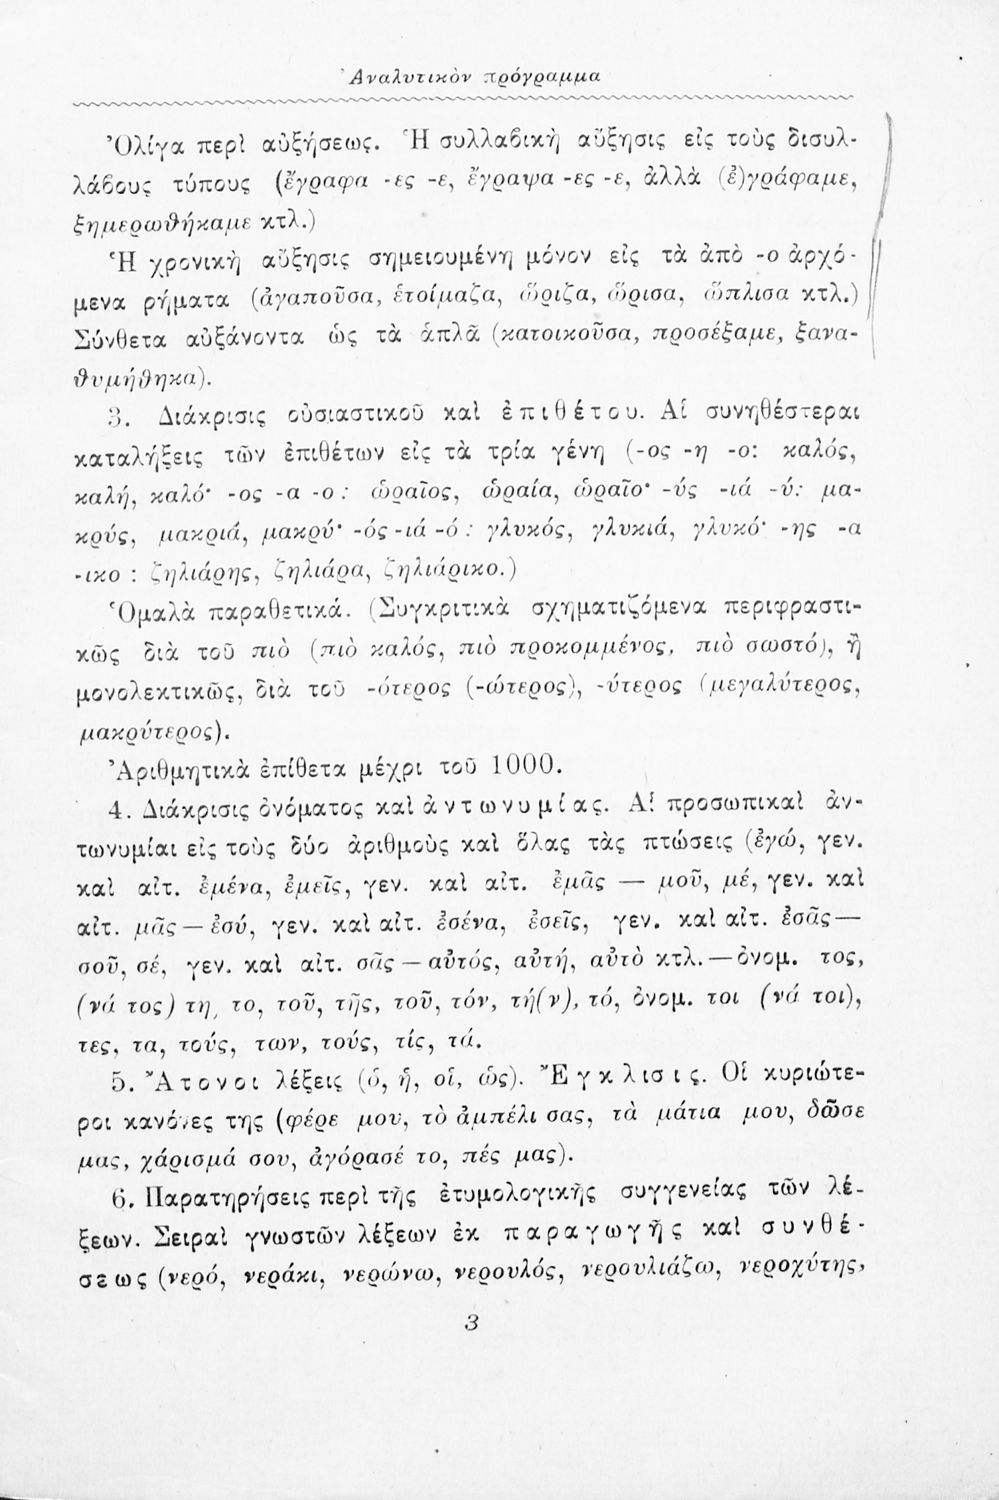 Ἀναλυτικὸν πρόγραμμα
Ὀλίγα περὶ αὐξήσεως. Ἡ συλλαβικὴ αὔξησις εἰς τοὺς δισυλ-
λάβους τύπους (ἔγραφα -ες -ε, ἔγραψα -ες -ε, ἀλλὰ (ἐ)γράφαμε,
ξημερωθήκαμε κτλ.)
Ἡ χρονικὴ αὔξησις σημειουμένη μόνον εἰς τὰ ἀπὸ -ο ἀρχό-
μενα ρήματα (ἀγαποῦσα, ἑτοίμαζα, ὥριζα, ὥρισα, ὥπλισα κτλ.)
Σύνθετα αὐξάνοντα ὡς τὰ ἁπλᾶ (κατοικοῦσα, προσέξαμε, ξανα-
θυμήθηκα).
3. Διάκρισις οὐσιαστικοῦ καὶ ἐπιθέτου. Αἱ συνηθέστεραι
καταλήξεις τῶν ἐπιθέτων εἰς τὰ τρία γένη (-ος -η -ο: καλός,
καλή, καλό· -ος -α -ο: ὡραῖος, ὡραία, ὡραῖο· -ύς -ιά -ύ: μα-
κρύς, μακριά, μακρύ· -ός -ιά -ό: γλυκός, γλυκιά, γλυκό· -ης -α
-ικο: ζηλιάρης, ζηλιάρα, ζηλιάρικο.)
Ὁμαλὰ παραθετικά. (Συγκριτικὰ σχηματιζόμενα περιφραστι-
κῶς διὰ τοῦ πιὸ (πιὸ καλός, πιὸ προκομμένος, πιὸ σωστό), ἢ
μονολεκτικῶς, διὰ τοῦ -ότερος (-ώτερος), -ύτερος (μεγαλύτερος,
μακρύτερος).
Ἀριθμητικὰ ἐπίθετα μέχρι τοῦ 1000.
4. Διάκρισις ὀνόματος καὶ ἀντωνυμίας. Αἱ προσωπικαὶ ἀν-
τωνυμίαι εἰς τοὺς δύο ἀριθμοὺς καὶ ὅλας τὰς πτώσεις (ἐγώ, γεν.
καὶ αἰτ. ἐμένα, ἐμεῖς, γεν. καὶ αἰτ. ἐμᾶς — μοῦ, μέ, γεν. καὶ
αἰτ. μᾶς — ἐσύ, γεν. καὶ αἰτ. ἐσένα, ἐσεῖς, γεν. καὶ αἰτ. ἐσᾶς—
σοῦ, σέ, γεν. καὶ αἰτ. σᾶς — αὐτός, αὐτή, αὐτὸ κτλ. — ὀνομ. τος,
(νά τος) τη, το, τοῦ, τῆς, τοῦ, τόν, τή(ν), τό, ὀνομ. τοι (νά τοι),
τες, τα, τούς, των, τούς, τίς, τά.
5. Ἄτονοι λέξεις (ὁ, ἡ, οἱ, ὡς). Ἔγκλισις. Οἱ κυριώτε-
ροι κανόνες της (φέρε μου, τὸ ἀμπέλι σας, τὰ μάτια μου, δῶσε
μας, χάρισμά σου, ἀγόρασέ το, πές μας).
6. Παρατηρήσεις περὶ τῆς ἐτυμολογικῆς συγγενείας τῶν λέ-
ξεων. Σειραὶ γνωστῶν λέξεων ἐκ παραγωγῆς καὶ συνθέ-
σεως (νερό, νεράκι, νερώνω, νερουλός, νερουλιάζω, νεροχύτης,
3